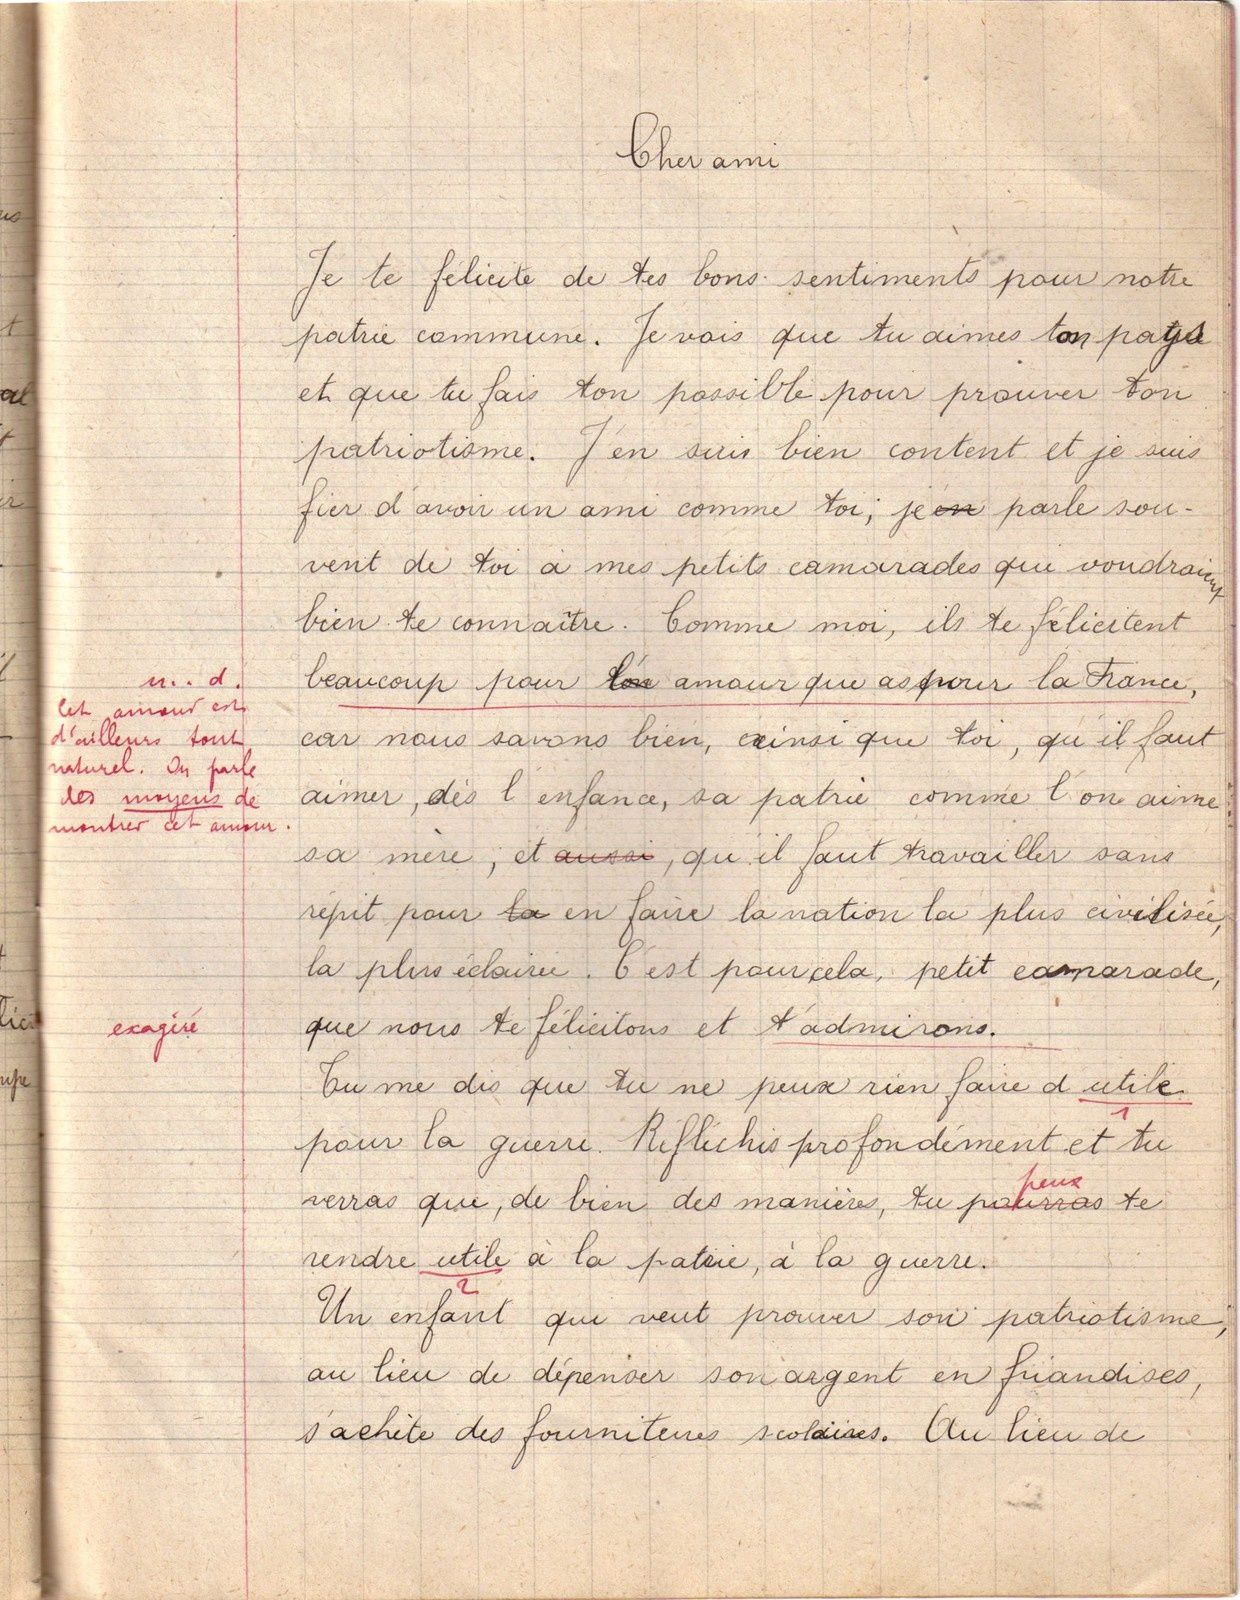 Cher ami
Je te félicite de tes bons sentiments pour notre
patrie commune. Je vois que tu aimes ton pays
et que tu fais ton possible pour prouver ton
patriotisme. J'en suis bien content et je suis
fier d'avoir un ami comme toi; je en parle sou-
vent de toi à mes petits camarades qui voudraient
bien te connaître. Comme moi, ils te félicitent
beaucoup pour l'amour que as pour la France,
car nous savons bien, ainsi que toi, qu'il faut
aimer, dès l'enfance, sa patrie comme l'on aime
sa mère, et aussi, qu'il faut travailler sans
répit pour la en faire la nation la plus civilisée,
la plus éclairée. C'est pour cela, petit camarade,
que nous te félicitons et t'admirons.
Tu me dis que tu ne peux rien faire d'utile
1
pour la guerre. Réfléchis profondément et tu
peux
verras que, de bien des manières, tu pourras te
rendre utile à la patrie, à la guerre.
2
Un enfant qui veut prouver son patriotisme,
au lieu de dépenser son argent en friandises,
s'achète des fournitures scolaires. Au lieu de
n.. d.
Cet amour est
d'ailleurs tout
naturel. On parle
des moyens de
montrer cet amour.
exagéré